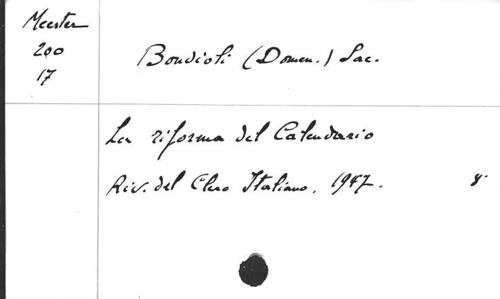 Meester
200
17
Bondioli (Domen.) Sac.
La riforma del Calendario
Riv. del Clero Italiano, 1947. 8°